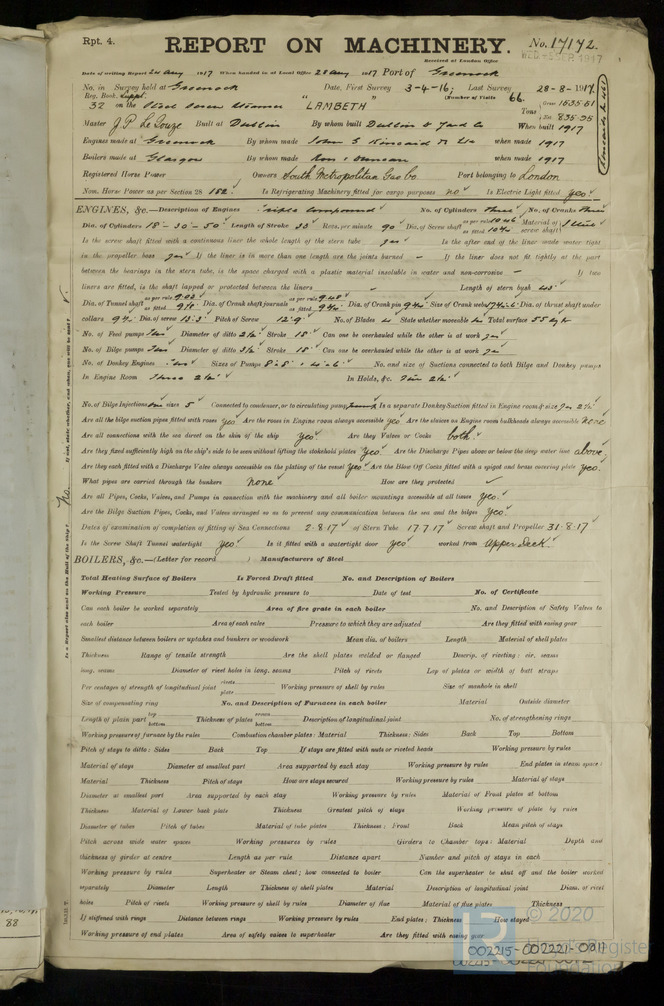 Rpt. 4.
REPORT ON MACHINERY.
No. 17172.
Received at London Office
Date of writing Report 24 Aug 1917 When handed in at Local Office 28 Aug 1917 Port of Greenock
No. in Survey held at Greenock Date, First Survey 3-4-16; Last Survey 28-8-1917.
Reg. Book. Suppl. (Number of Visits 66.
32 on the Steel Screw Steamer "LAMBETH" Tons Gross 1535.61 Net 835.95
Master J.P. Le Gouze Built at Dublin By whom built Dublin D Yard Co When built 1917
Engines made at Greenock By whom made John G Kincaid & Co when made 1917
Boilers made at Glasgow By whom made when made 1917
Registered Horse Power Owners South Metropolitan Gas Co Port belonging to London
Nom. Horse Power as per Section 28 152 Is Refrigerating Machinery fitted for cargo purposes no Is Electric Light fitted yes
ENGINES, &c.—Description of Engines Triple Compound No. of Cylinders Three No. of Cranks Three
Dia. of Cylinders 18 - 30 - 50 Length of Stroke 33 Revs. per minute 90 Dia. of Screw shaft as per rule as fitted Material of screw shaft Steel
Is the screw shaft fitted with a continuous liner the whole length of the stern tube yes Is the after end of the liner made water tight
in the propeller boss yes If the liner is in more than one length are the joints burned — If the liner does not fit tightly at the part
between the bearings in the stern tube, is the space charged with a plastic material insoluble in water and non-corrosive — If two
liners are fitted, is the shaft lapped or protected between the liners Length of stern bush
Dia. of Tunnel shaft as per rule 9.03 as fitted Dia. of Crank shaft journals as per rule 9.48 as fitted Dia. of Crank pin Size of Crank webs Dia. of thrust shaft under
collars Dia. of screw 13.3 Pitch of Screw 12.9 No. of Blades 4 State whether moveable Total surface 55
No. of Feed pumps Two Diameter of ditto 2½ Stroke 15 Can one be overhauled while the other is at work yes
No. of Bilge pumps Two Diameter of ditto 3½ Stroke 15 Can one be overhauled while the other is at work yes
No. of Donkey Engines Two Sizes of Pumps No. and size of Suctions connected to both Bilge and Donkey pumps
In Engine Room Three 2½ In Holds, &c. 2½
No. of Bilge Injections one sizes 5 Connected to condenser, or to circulating pump pump Is a separate Donkey Suction fitted in Engine room & size yes 2½
Are all the bilge suction pipes fitted with roses yes Are the roses in Engine room always accessible yes Are the sluices on Engine room bulkheads always accessible none
Are all connections with the sea direct on the skin of the ship yes Are they Valves or Cocks both
Are they fixed sufficiently high on the ship's side to be seen without lifting the stokehold plates yes Are the Discharge Pipes above or below the deep water line above
Are they each fitted with a Discharge Valve always accessible on the plating of the vessel yes Are the Blow Off Cocks fitted with a spigot and brass covering plate yes.
What pipes are carried through the bunkers none How are they protected
Are all Pipes, Cocks, Valves, and Pumps in connection with the machinery and all boiler mountings accessible at all times yes.
Are the Bilge Suction Pipes, Cocks, and Valves arranged so as to prevent any communication between the sea and the bilges yes
Dates of examination of completion of fitting of Sea Connections 2-8-17 of Stern Tube 17 7 17 Screw shaft and Propeller 31-8-17
Is the Screw Shaft Tunnel watertight yes Is it fitted with a watertight door yes worked from Upper Deck.
BOILERS, &c.—(Letter for record ) Manufacturers of Steel
Total Heating Surface of Boilers Is Forced Draft fitted No. and Description of Boilers
Working Pressure Tested by hydraulic pressure to Date of test No. of Certificate
Can each boiler be worked separately Area of fire grate in each boiler No. and Description of Safety Valves to
each boiler Area of each valve Pressure to which they are adjusted Are they fitted with easing gear
Smallest distance between boilers or uptakes and bunkers or woodwork Mean dia. of boilers Length Material of shell plates
Thickness Range of tensile strength Are the shell plates welded or flanged Descrip. of riveting: cir. seams
long. seams Diameter of rivet holes in long. seams Pitch of rivets Lap of plates or width of butt straps
Per centages of strength of longitudinal joint rivets plate Working pressure of shell by rules Size of manhole in shell
Size of compensating ring No. and Description of Furnaces in each boiler Material Outside diameter
Length of plain part top bottom Thickness of plates crown bottom Description of longitudinal joint No. of strengthening rings
Working pressure of furnace by the rules Combustion chamber plates: Material Thickness: Sides Back Top Bottom
Pitch of stays to ditto: Sides Back Top If stays are fitted with nuts or riveted heads Working pressure by rules
Material of stays Diameter at smallest part Area supported by each stay Working pressure by rules End plates in steam space:
Material Thickness Pitch of stays How are stays secured Working pressure by rules Material of stays
Diameter at smallest part Area supported by each stay Working pressure by rules Material of Front plates at bottom
Thickness Material of Lower back plate Thickness Greatest pitch of stays Working pressure of plate by rules
Diameter of tubes Pitch of tubes Material of tube plates Thickness: Front Back Mean pitch of stays
Pitch across wide water spaces Working pressures by rules Girders to Chamber tops: Material Depth and
thickness of girder at centre Length as per rule Distance apart Number and pitch of stays in each
Working pressure by rules Superheater or Steam chest; how connected to boiler Can the superheater be shut off and the boiler worked
separately Diameter Length Thickness of shell plates Material Description of longitudinal joint Diam. of rivet
holes Pitch of rivets Working pressure of shell by rules Diameter of flue Material of flue plates Thickness
If stiffened with rings Distance between rings Working pressure by rules End plates: Thickness How stayed
Working pressure of end plates Area of safety valves to superheater Are they fitted with easing gear
© 2020
Lloyd's Register
Foundation
002215-002221-0011
88